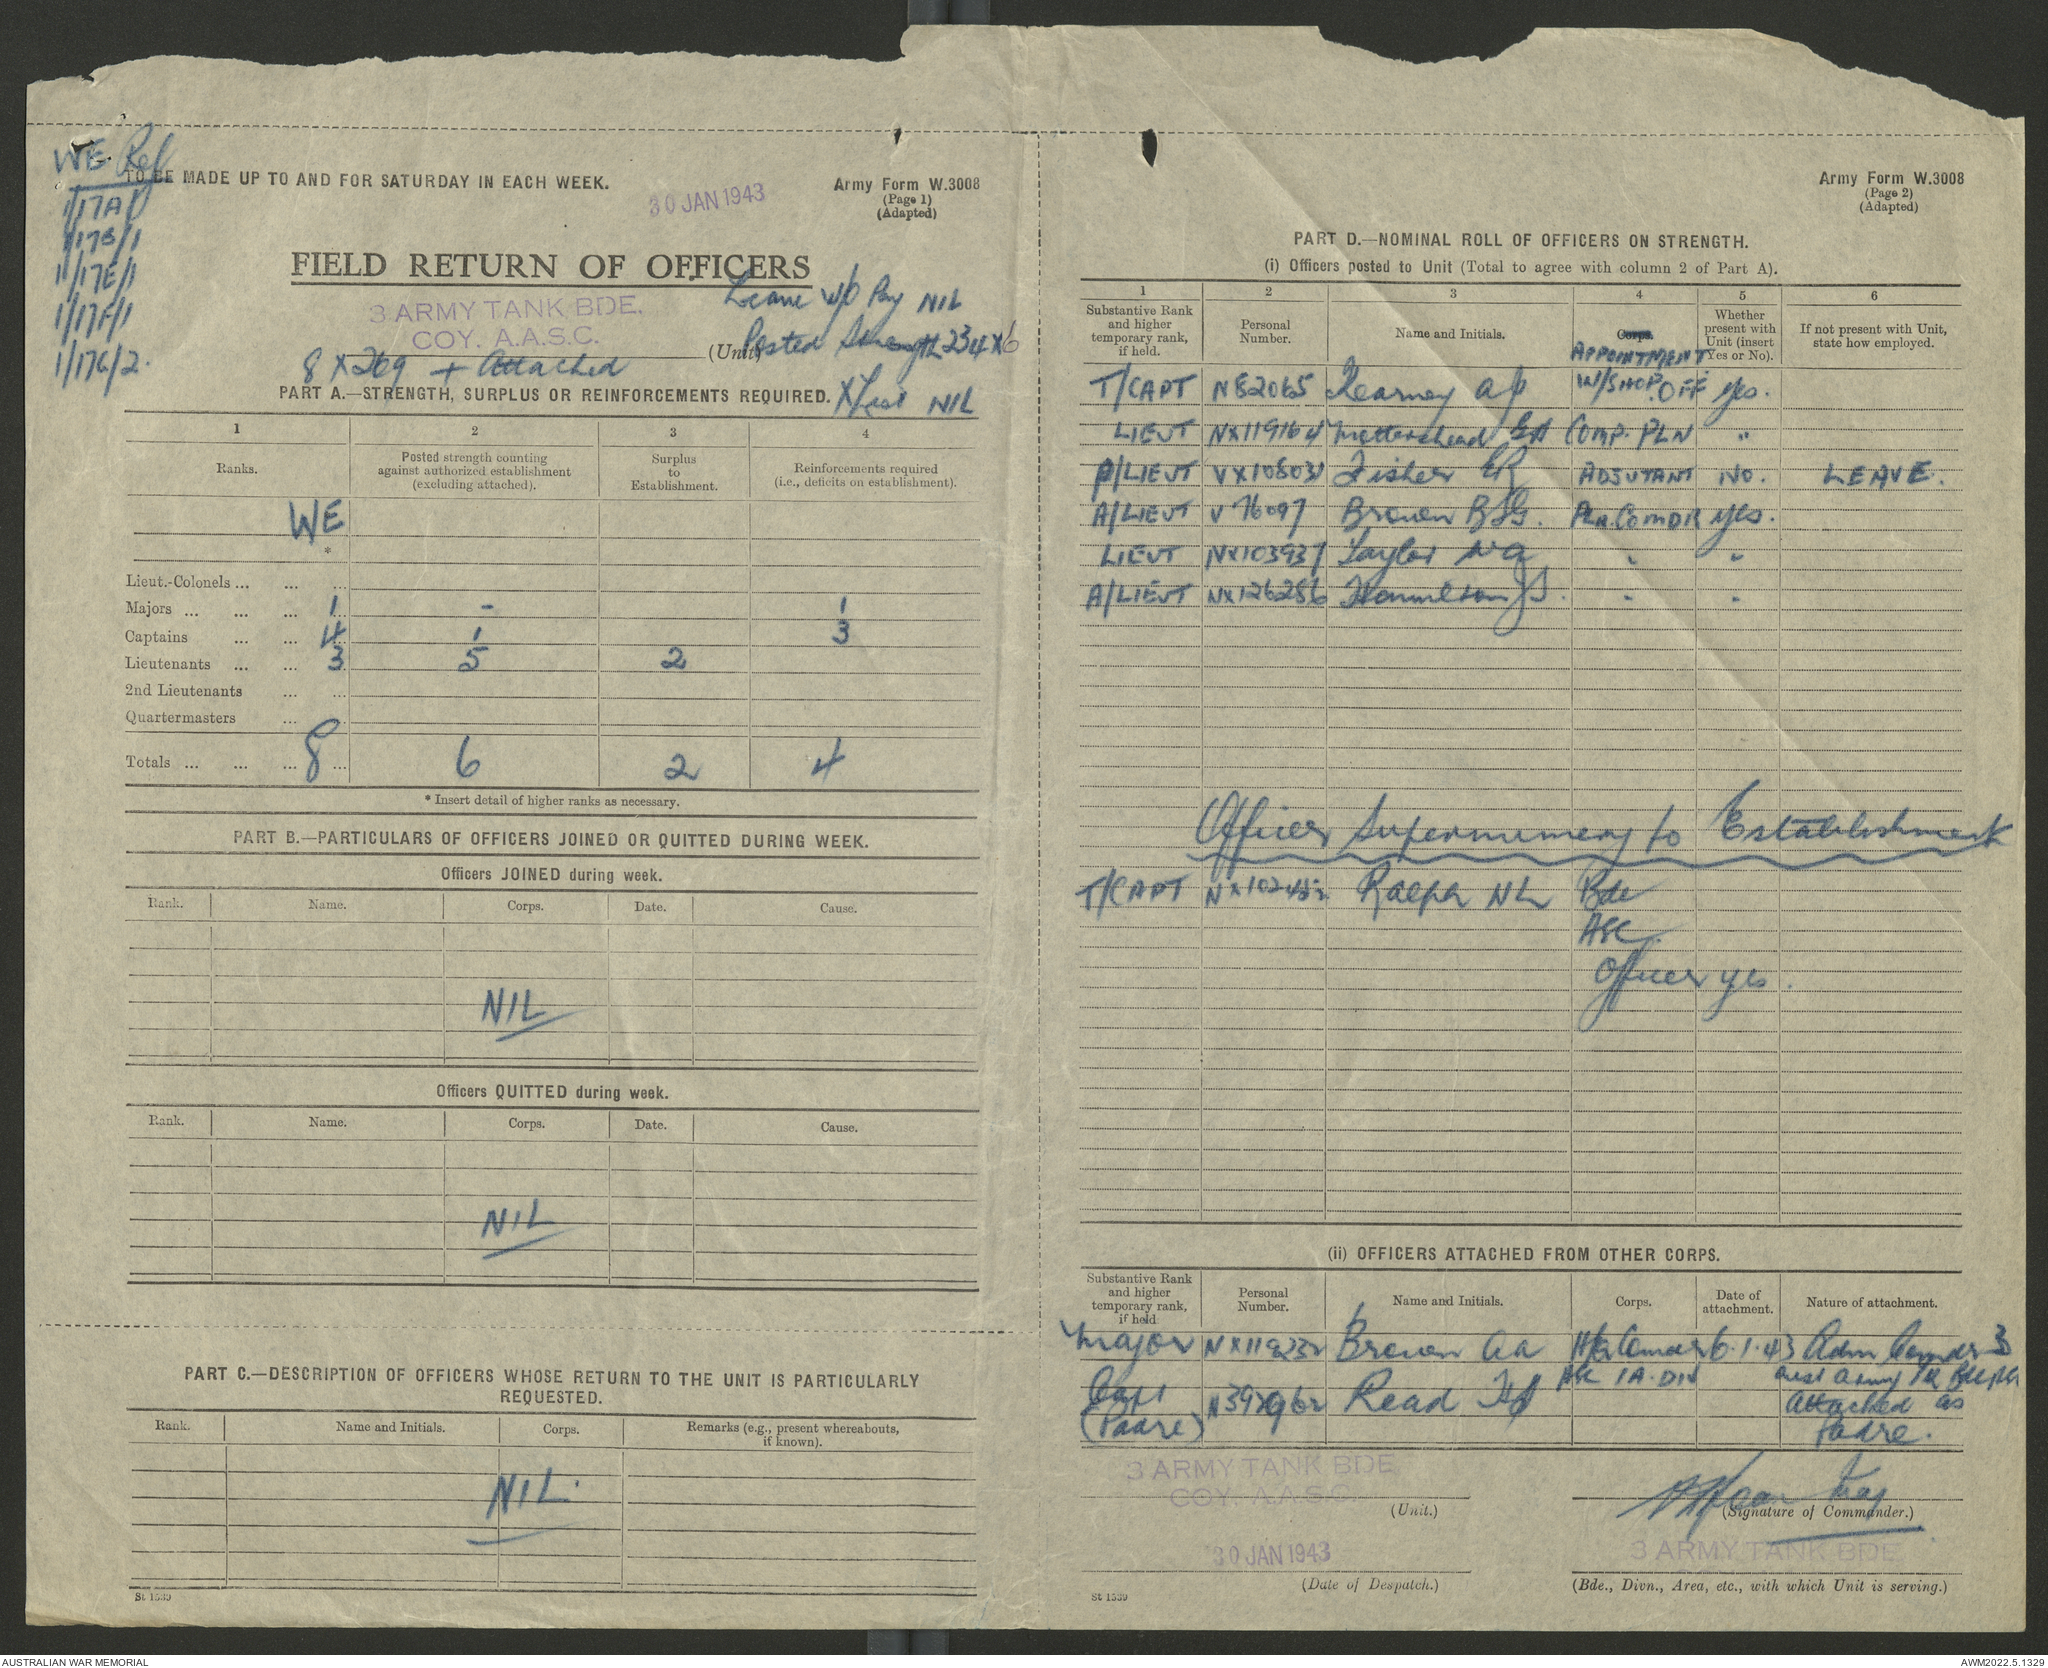 WE Ref
1/17A/1
1/17B/1
1/17E/1
1/17F/1
1/17G/2.
TO BE MADE UP TO AND FOR SATURDAY IN EACH WEEK.
30 JAN 1943
Army Form W.3008
(Page 1)
(Adapted)
FIELD RETURN OF OFFICERS
3 ARMY TANK BDE.
COY. A.A.S.C.
(Unit)
Leave w/o Pay NIL
Posted Strength 234 x 6
8 X 269 + Attached
X List NIL
PART A.—STRENGTH, SURPLUS OR REINFORCEMENTS REQUIRED.
1 2 3 4
Ranks. Posted strength counting against authorized establishment (excluding attached). Surplus to Establishment. Reinforcements required (i.e., deficits on establishment).
WE
*
Lieut.-Colonels ... ... ...
Majors ... ... ... 1 - 1
Captains ... ... 4 1 3
Lieutenants ... ... 3 5 2
2nd Lieutenants ... ...
Quartermasters ...
Totals ... ... ... 8 ... 6 2 4
* Insert detail of higher ranks as necessary.
PART B.—PARTICULARS OF OFFICERS JOINED OR QUITTED DURING WEEK.
Officers JOINED during week.
Rank. Name. Corps. Date. Cause.
NIL
Officers QUITTED during week.
Rank. Name. Corps. Date. Cause.
NIL
PART C.—DESCRIPTION OF OFFICERS WHOSE RETURN TO THE UNIT IS PARTICULARLY
REQUESTED.
Rank. Name and Initials. Corps. Remarks (e.g., present whereabouts, if known).
NIL.
St 1539
Army Form W.3008
(Page 2)
(Adapted)
PART D.—NOMINAL ROLL OF OFFICERS ON STRENGTH.
(i) Officers posted to Unit (Total to agree with column 2 of Part A).
1 2 3 4 5 6
Substantive Rank and higher temporary rank, if held. Personal Number. Name and Initials. Corps. APPOINTMENT Whether present with Unit (insert Yes or No). If not present with Unit, state how employed.
T/CAPT N82065 Kearney A J W/SHOP. OFF Yes.
LIEUT NX119164 Mottershead G A COMP. PLN "
A/LIEUT VX108031 Fisher ER ADJUTANT NO. LEAVE.
A/LIEUT V76097 Brown B J G. PLN. COMDR Yes.
LIEUT NX103937 Taylor N G " "
A/LIEUT NX126286 Hamilton J S. " "
Officer Supernumery to Establishment
T/CAPT Ralph N L Bde
ASC.
Officer yes.
(ii) OFFICERS ATTACHED FROM OTHER CORPS.
Substantive Rank and higher temporary rank, if held Personal Number. Name and Initials. Corps. Date of attachment. Nature of attachment.
Major Brown AA 6.1.43 Adm Comdr 3
ASC 1A. DIV Aust Army Tk Bde
Capt Read Attached as
(Padre) Padre.
3 ARMY TANK BDE
COY. A.A.S.C.
(Unit.)
(Signature of Commander.)
30 JAN 1943
3 ARMY TANK BDE
(Date of Despatch.)
(Bde., Divn., Area, etc., with which Unit is serving.)
St 1539
AUSTRALIAN WAR MEMORIAL
AWM2022.5.1329